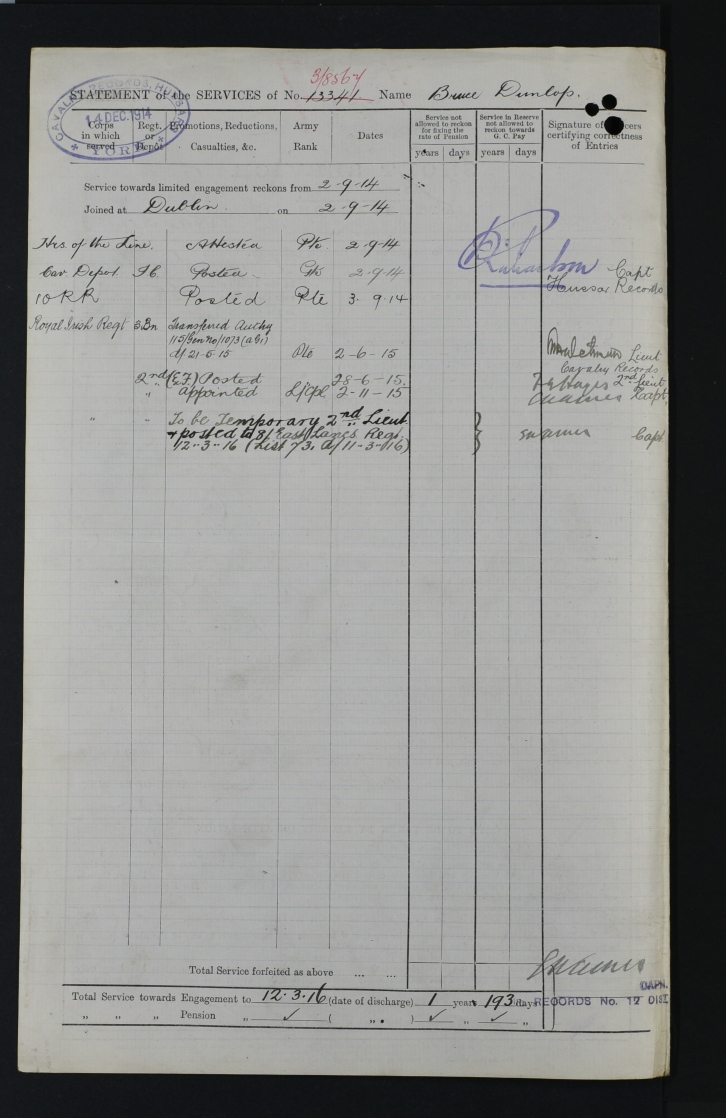 3/8567
STATEMENT of the SERVICES of No. 13341 Name Bruce Dunlop.
CAVALRY RECORDS, HUSSARS
14 DEC. 1914
YORK
Corps in which served
Regt. or Depôt
Promotions, Reductions, Casualties, &c.
Army Rank
Dates
Service not allowed to reckon for fixing the rate of Pension
years days
Service in Reserve not allowed to reckon towards G. C. Pay
years days
Signature of Officers certifying correctness of Entries
Service towards limited engagement reckons from 2-9-14
Joined at Dublin on 2-9-14
Hrs. of the Line. Attested Pte 2-9-14
Cav Depot Posted Pte 2-9-14
Richardson Capt
Hussar Records
10 RR Posted Pte 3.9.14
Royal Irish Regt 3 Bn Transferred Authy
115/Gen No/1073 (a G1)
d/ 21-5-15 Pte 2-6-15
Lieut
Cavalry Records
2nd (E.F.) Posted 28-6-15. 2nd Lieut
" appointed L/Cpl 2-11-15 Capt
" " To be Temporary 2nd Lieut
+ posted to 8/ East Lancs Regt
12-3-16 (List 73, d/ 11-3-16) Capt
Total Service forfeited as above ... ...
Total Service towards Engagement to 12.3.16 (date of discharge) 1 years 193 days
" " " Pension " ✓ ( " . ) ✓ " ✓ "
CAPN.
RECORDS No. 12 DIST